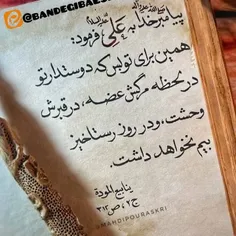 @BANDEGIBA
پیامبر خدا به عَلِی فرمود:
همین برای تو بس که دوستدار تو
در لحظه مرگش غصه، در قبرش
وحشت، و در روز رستاخیز
بیم نخواهد داشت.
ینابیع المودة
ج۲، ص۳۱۲
@MAHDIPOURASKRI